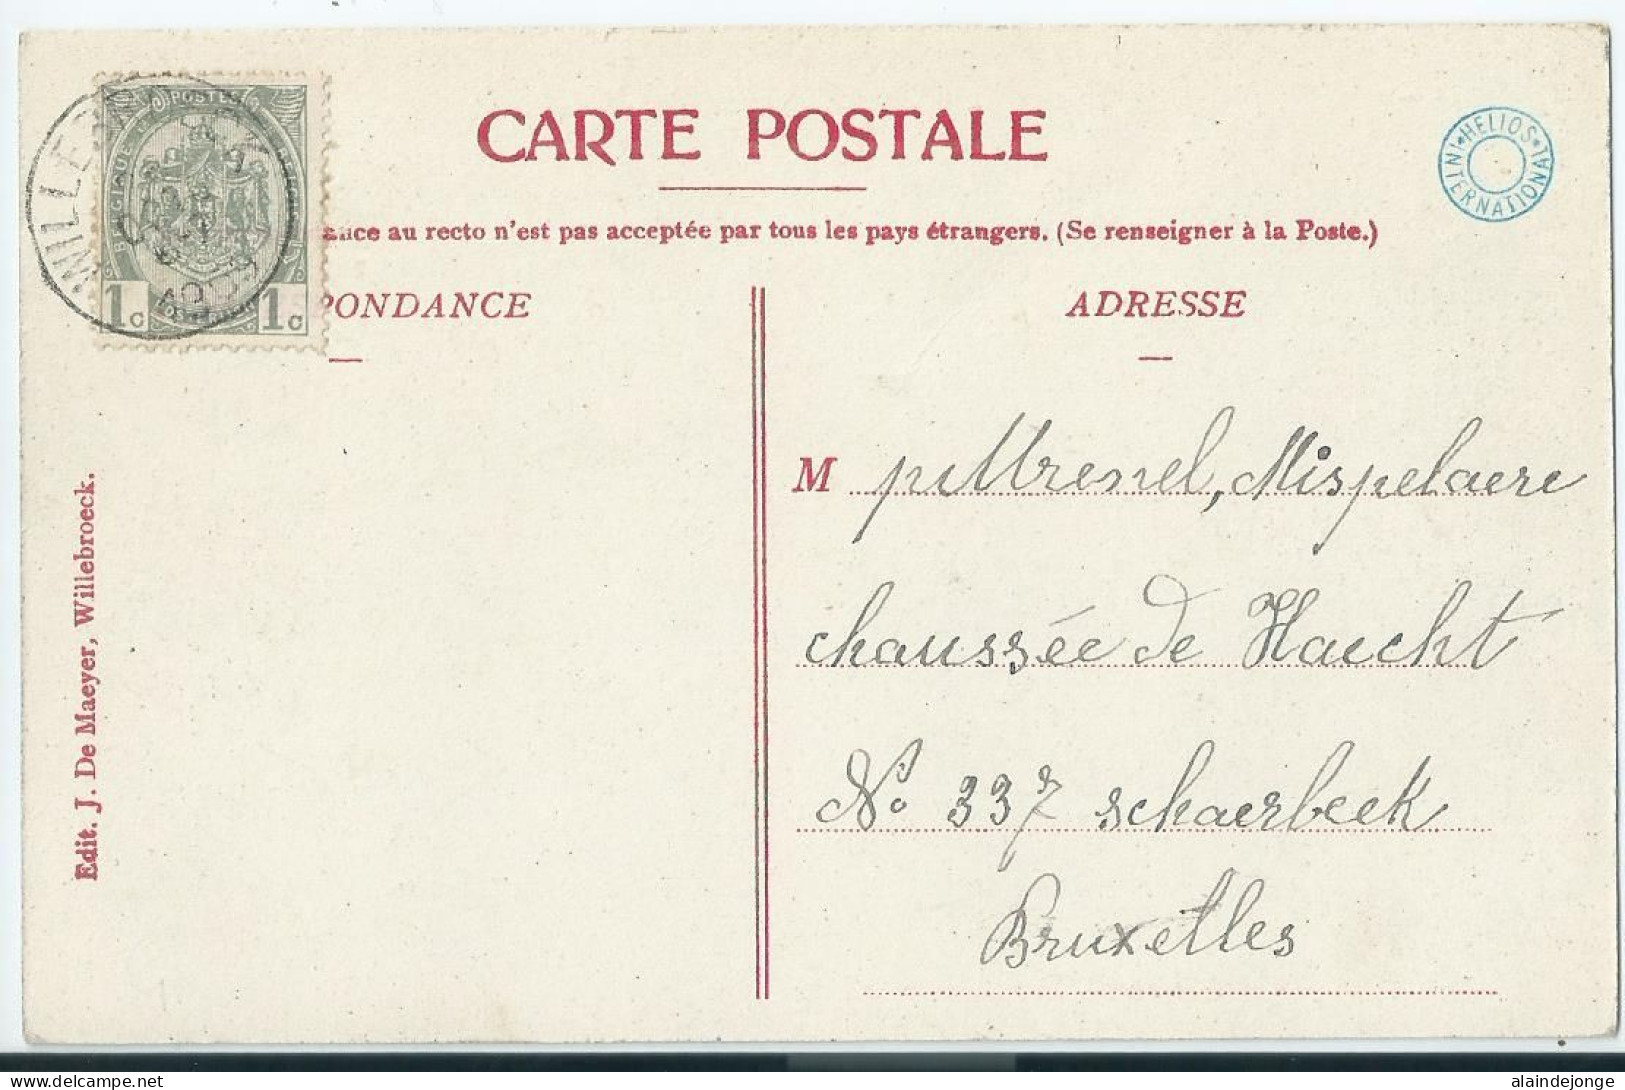 CARTE POSTALE
HELIOS * INTERNATIONAL *
POSTES
BELGIQUE
1c 1c
WILLEBR
ance au recto n'est pas acceptée par tous les pays étrangers. (Se renseigner à la Poste.)
PONDANCE
ADRESSE
M Mispelaere
chaussée de Haecht
No 337 schaerbeek
Bruxelles
Edit. J. De Maeyer, Willebroeck.
alaindejonge